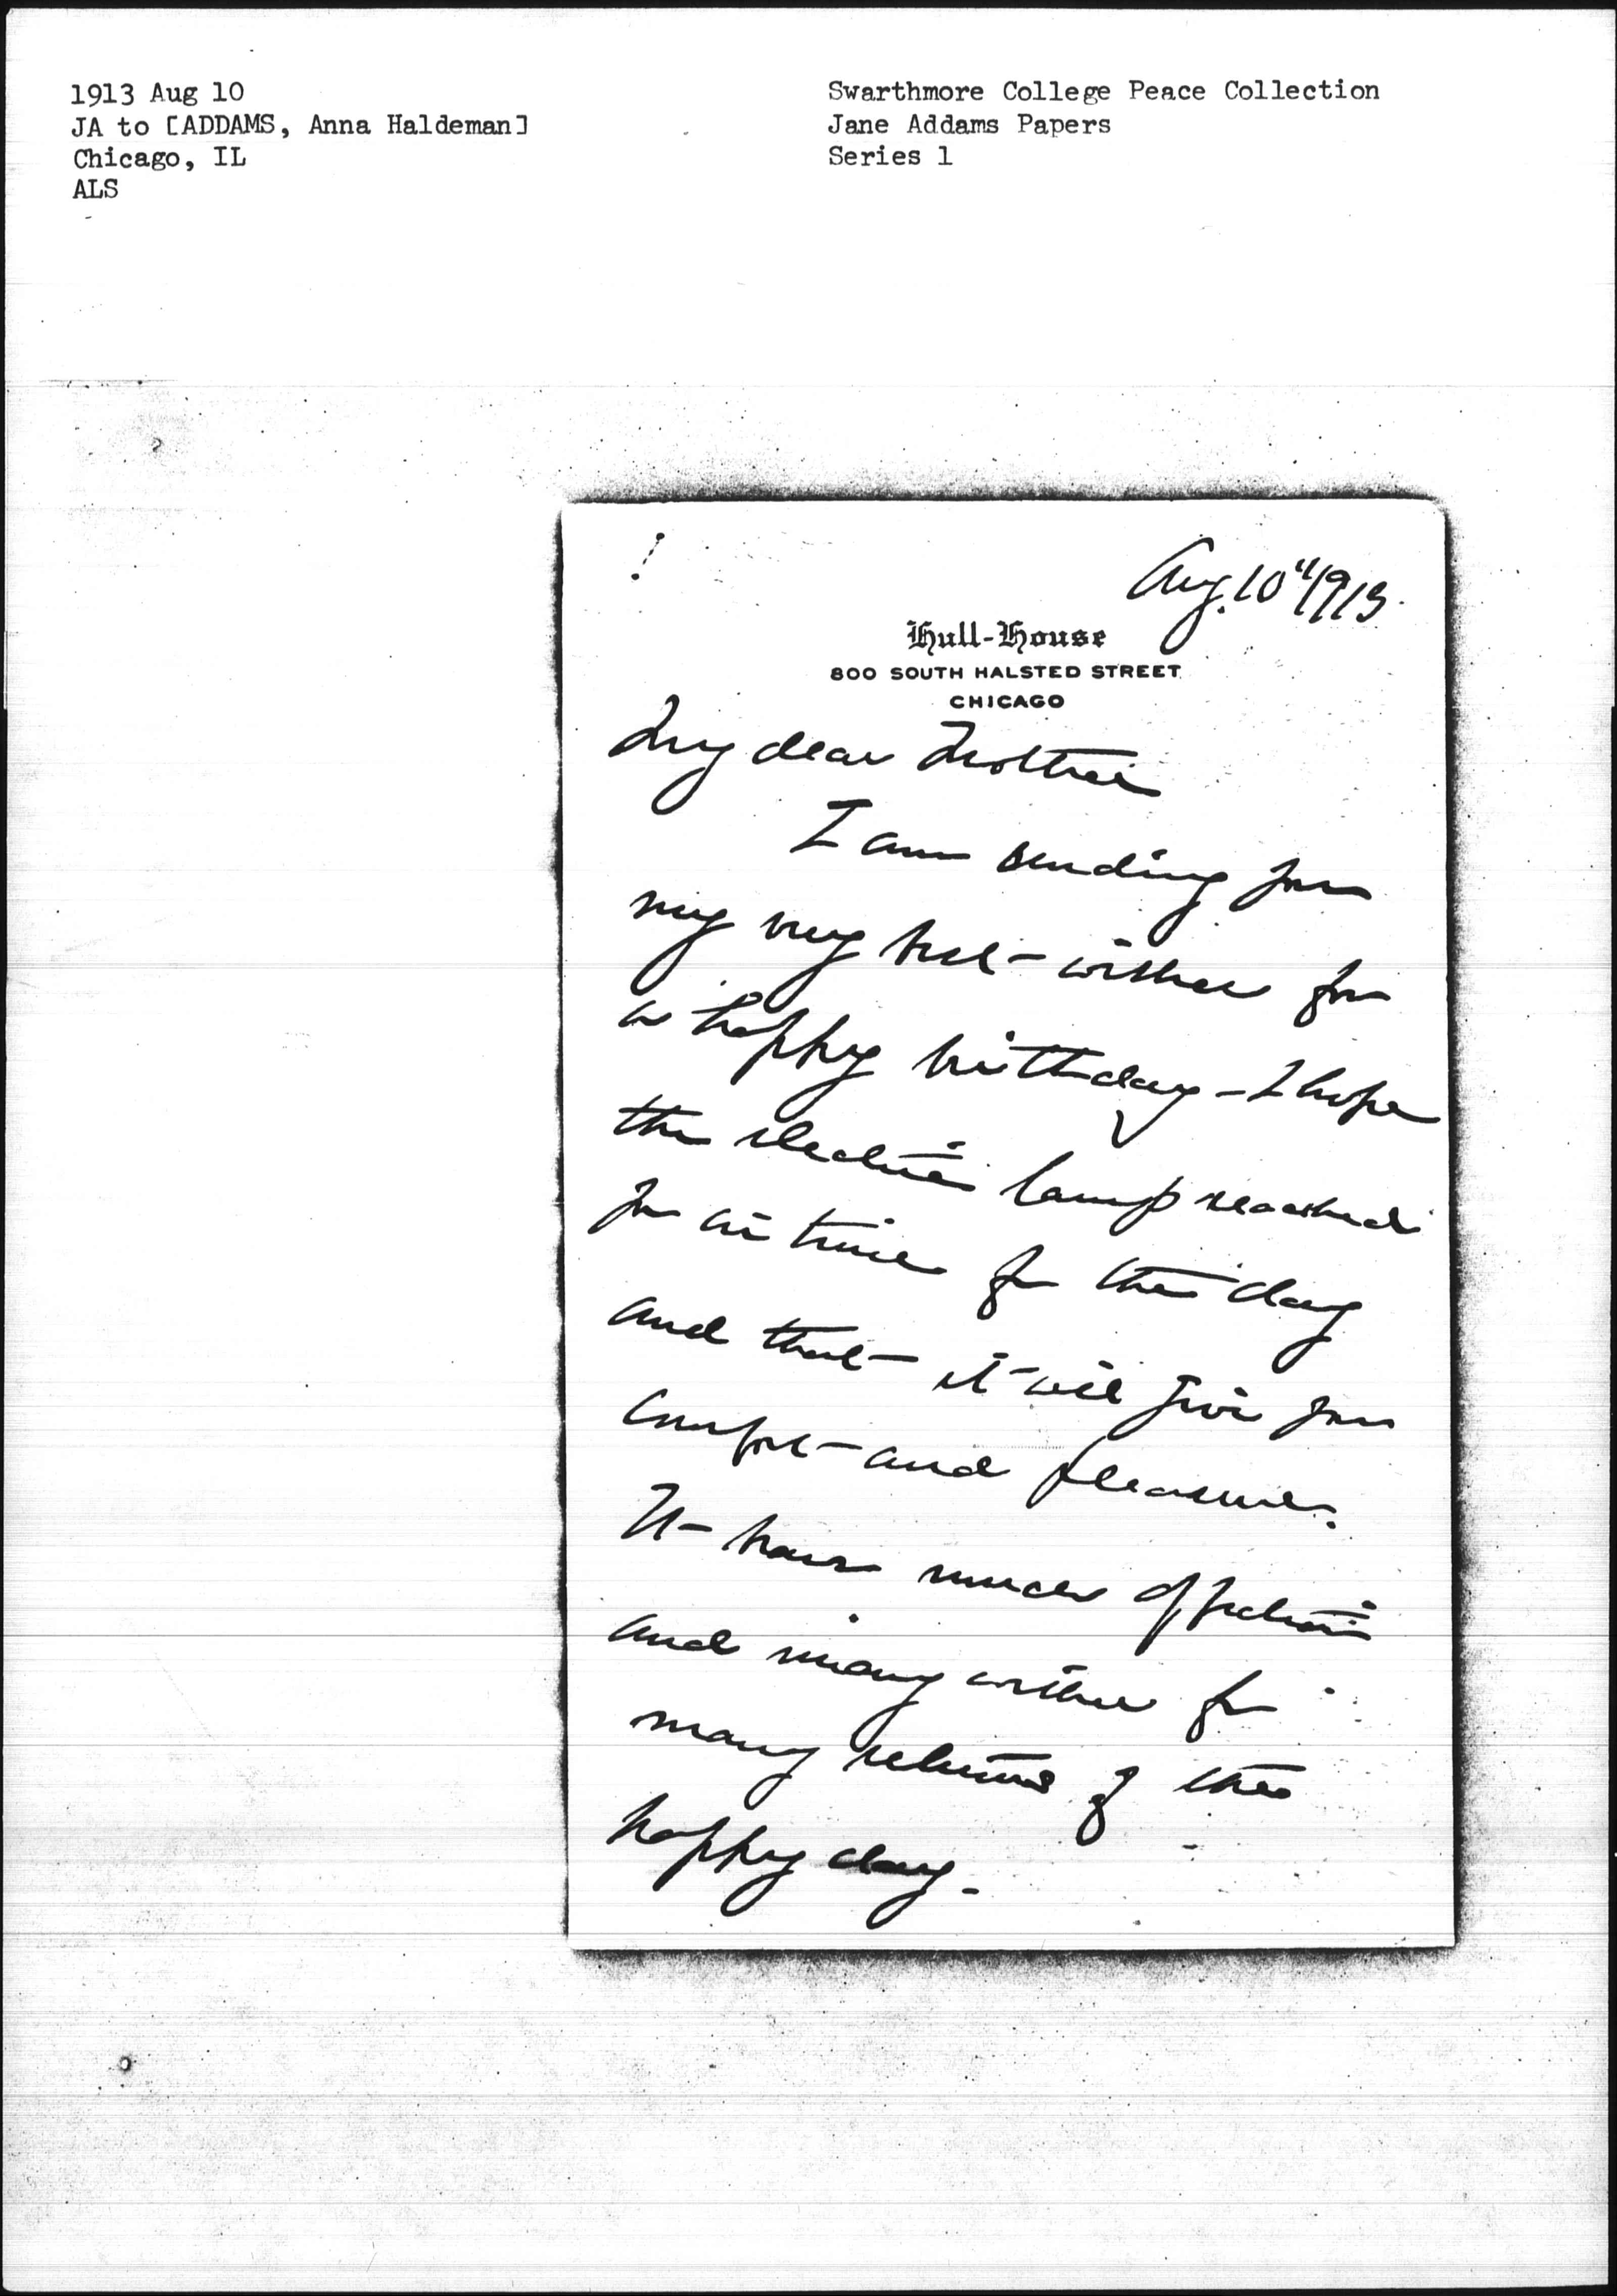 1913 Aug 10
JA to [ADDAMS, Anna Haldeman]
Chicago, IL
ALS
Swarthmore College Peace Collection
Jane Addams Papers
Series 1
Aug. 10" 1913.
Hull-House
800 SOUTH HALSTED STREET
CHICAGO
My dear Mother
I am sending you
my very best wishes for
a happy birthday - I hope
the electric lamp reached
you in time for the day
and that it will give you
comfort and pleasure.
It has much affection
and many wishes for
many returns of the
happy day -